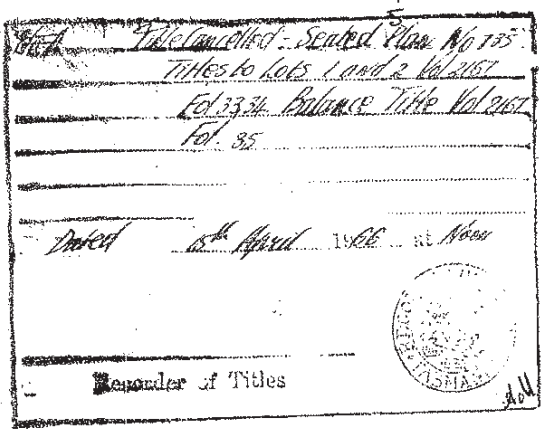 Title Cancelled - Sealed Plan No 135.
Titles to Lots 1 and 2 Vol 2167
Fol 33,34 Balance Title Vol 2167
Fol. 35
Dated 15th April 1966 at Noon
Recorder of Titles